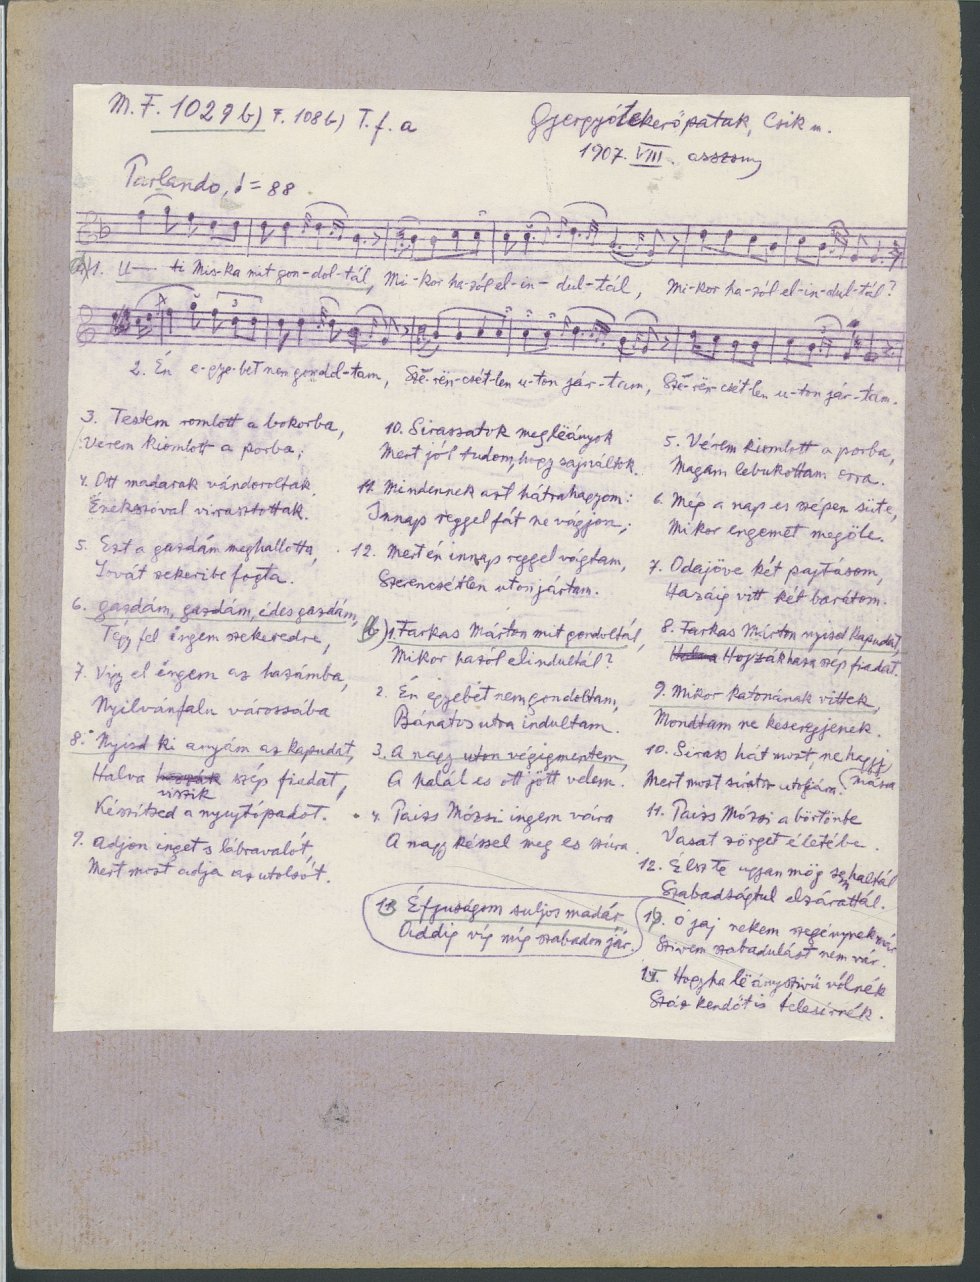 M. F. 1029 b) F. 108 b) T. f. a
Gyergyótekerőpatak, Csik m.
1907. VIII. asszony
Parlando, ♩ = 88
a) 1. U- ti Mis-ka mit gon-dol-tál, Mi-kor ha-zól el-in-dul-tál, Mi-kor ha-zól el-in-dul-tál?
3
2. Én e-gye-bet nem gondol-tam, Szë-rën-csét-len u-ton jár-tam, Szë-rën-csét-len u-ton jár-tam.
3. Testem romlott a bokorba,
Vérem kiomlott a porba;
4. Ott madarak vándoroltak,
Énekszóval virasztottak.
5. Ezt a gazdám meghallotta,
Lovát szekeribe fogta.
6. gazdám, gazdám, édes gazdám,
Tégy fel éngem szekeredre,
7. Vigy el éngem az hazámba,
Nyilvánfalu városába
8. Nyisd ki anyám az kapudat,
Halva hozzák szép fiadat,
viszik
Készitsed a nyujtópadot.
9. adjon inget s lábravalót,
Mert most adja az utolsót.
10. Sirassatok meg lëányok
Mert jól tudom, hogy sajnáltok.
11. Mindennek azt hátrahagyom:
Innap reggel fát ne vágjon;
12. Mert én innap reggel vágtam,
Szerencsétlen uton jártam.
b) 1. Farkas Márton mit gondoltál,
Mikor hazól elindultál?
2. Én egyebét nem gondoltam,
Bánatos utra indultam.
3. A nagy uton végigmentem,
A halál es ott jött velem.
4. Paizs Mózsi ingem vára
A nagy késsel meg es szúra.
13 Éfjuságom suljos madár,
Addig víg míg szabadon jár.
5. Vérem kiomlott a porba,
Magam lebukottam orra.
6. Még a nap es szépen süte,
Mikor engemet megöle.
7. Odajöve két pajtásom,
Hazáig vitt két barátom.
8. Farkas Márton nyisd kapudat,
Halva Hozzák haza szép fiadat.
9. Mikor katonának vittek,
Mondtam ne keseregjenek.
10. Sirass hát most, ne hagyj
másra
Mert most siratsz utojára.
11. Paizs Mózsi a börtönbe
Vasat zörget életébe.
12. Élszte ugyan még s haltál
Szabadságtul elzárattál.
13. Ó jaj nekem szegénynek már
Szivem szabadulást nem vár.
14. Hogyha lëányszivü vólnék
Száz kendőt is telesirnék.